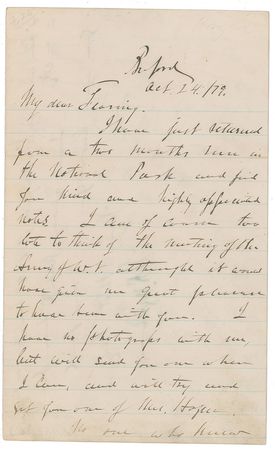 Buford
Oct. 24./79.
My dear Fearing.
I have just returned
from a two months run in
the National Park and find
your kind and highly appreciated
note. I am of course too
late to think of the meeting of the
Army of W. V. although it would
have given me great pleasure
to have been with you. I
have no photographs with me,
but will send you one when
I can, and will try and
get you one of Mrs. Hazen.
No one who knew